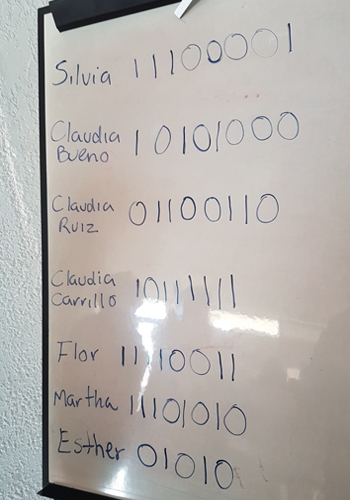 Silvia 11100001
Claudia
Bueno 10101000
Claudia
Ruiz 01100110
Claudia
Carrillo 10111111
Flor 11110011
Martha 11101010
Esther 01010